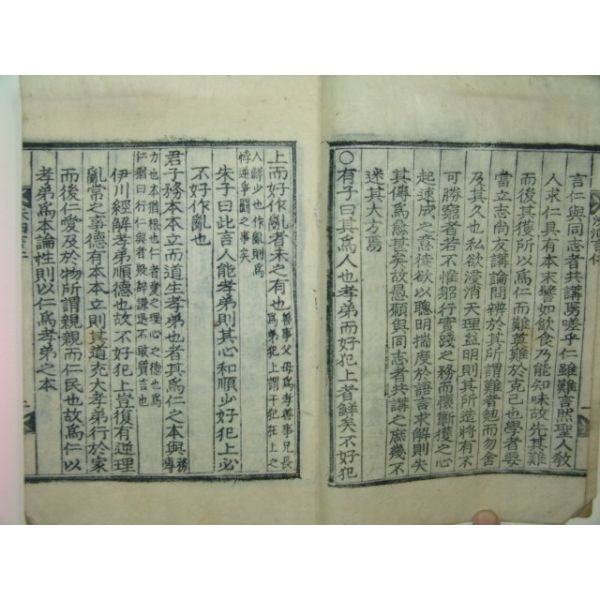 言仁與同志者共講焉嗟乎仁雖難言然聖人敎
人求仁具有本末譬如飲食乃能知味故先其難
而後其獲所以爲仁而難莫難於克己也學者要
當立志尚友講論問辨於其所謂難者勉而勿舍
及其久也私欲浸消天理益明則其所造將有不
可勝窮者若不惟躬行實踐之務而懷蘄獲之心
起速成之意徒欲以聰明揣度於語言求解則失
其傳爲愈甚矣故愚願與同志者共講之庶幾不
迷其大方焉
○有子曰其爲人也孝弟而好犯上者鮮矣不好犯
上而好作亂者未之有也善事父母爲孝善事兄長爲弟犯上謂干犯在上之
人鮮少也作亂則爲悖逆爭鬪之事矣
朱子曰此言人能孝弟則其心和順少好犯上必
不好作亂也
君子務本本立而道生孝弟也者其爲仁之本與務專
力也本猶根也仁者愛之理心之德也爲仁猶曰行仁與者疑辭謙退不敢質言也
伊川經解孝弟順德也故不好犯上豈復有逆理
亂常之事德有本本立則其道充大孝弟行於家
而後仁愛及於物所謂親親而仁民也故爲仁以
孝弟爲本論性則以仁爲孝弟之本